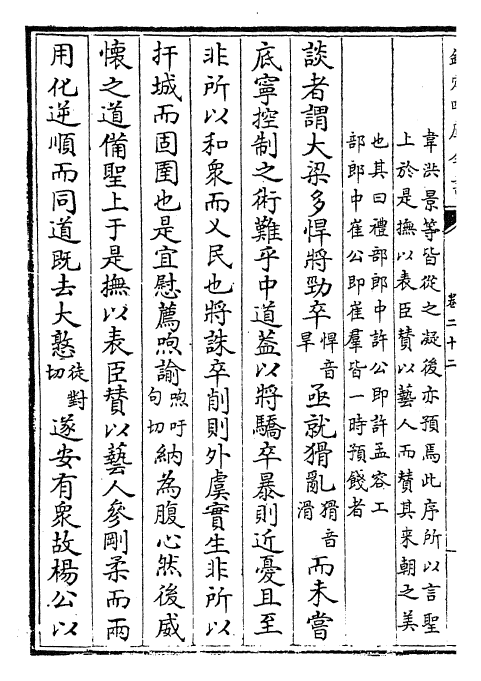 欽定四庫全書
卷二十二
韋洪景等皆從之凝後亦預焉此序所以言聖
上於是撫以表臣賛以藝人而賛其来朝之美
也其曰禮部郎中許公即許孟容工
部郎中崔公即崔羣皆一時預餞者
談者謂大梁多悍將勁卒悍音旱亟就猾亂猾音滑而未嘗
底寧控制之術難乎中道葢以將驕卒暴則近憂且至
非所以和衆而乂民也將誅卒削則外虞實生非所以
扞城而固圉也是宜慰薦喣諭喣吁句切納為腹心然後威
懷之道備聖上于是撫以表臣賛以藝人參剛柔而兩
用化逆順而同道既去大憝徒對切遂安有衆故楊公以